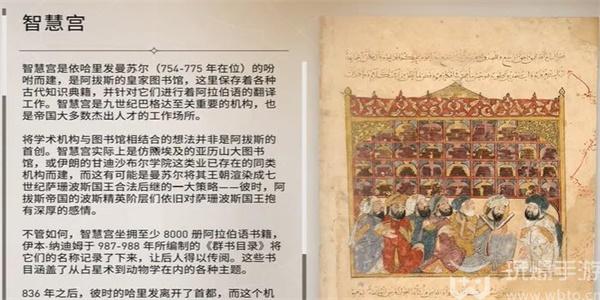 智慧宫
智慧宫是依哈里发曼苏尔（754-775 年在位）的吩
咐而建，是阿拔斯的皇家图书馆，这里保存着各种
古代知识典籍，并针对它们进行着阿拉伯语的翻译
工作。智慧宫是九世纪巴格达至关重要的机构，也
是帝国大多数杰出人才的工作场所。
将学术机构与图书馆相结合的想法并非是阿拔斯的
首创。智慧宫实际上是仿照埃及的亚历山大图书
馆，或伊朗的甘迪沙布尔学院这类业已存在的同类
机构而建，而这有可能是曼苏尔将其王朝渲染成七
世纪萨珊波斯国王合法后继的一大策略——彼时，阿
拔斯帝国的波斯精英阶层们依旧对萨珊波斯国王抱
有深厚的感情。
不管如何，智慧宫坐拥至少 8000 册阿拉伯语书籍，
伊本·纳迪姆于 987-988 年所编制的《群书目录》将
它们的名称记录了下来，让后人得以传阅。这些书
籍涵盖了从占星术到动物学在内的各种主题。
836 年之后，彼时的哈里发离开了首都，而这个机
玩爆手游
www.wbto.cn